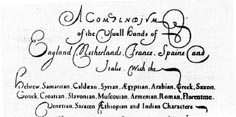 A COMPENDIUM
of the Usuall hands of
England Netherlands, France, Spaine and
Italie with the
Hebrew, Samaritan, Caldean, Syrian, Ægyptian, Arabian, Greek, Saxon,
Gotick, Croatian, Slavonian, Muscouian, Armenian, Roman, Florentine,
Venetian, Saracen Æthiopian and Indian Characters